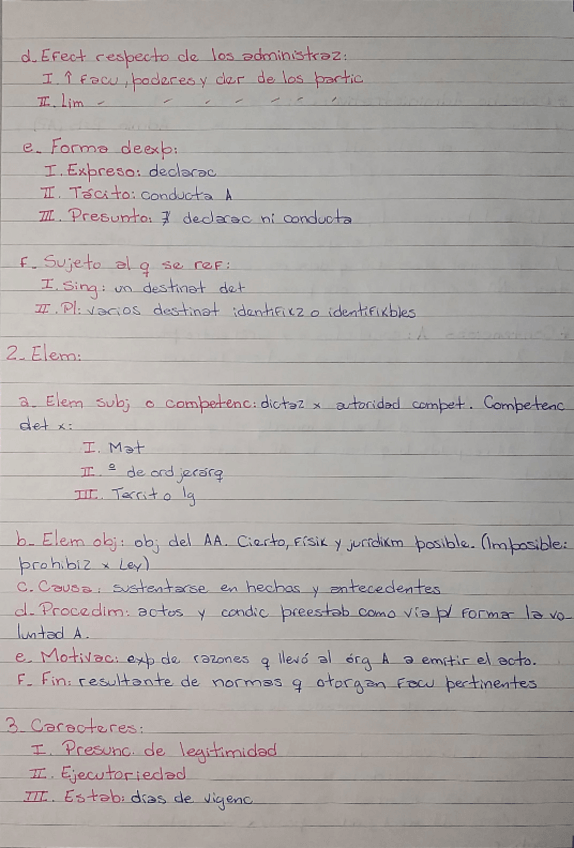 d. Efect respecto de los administraz:
I. ↑ Facu, poderes y der de los partic
II. Lim - - - - - - -
e. Forma de exp:
I. Expreso: declarac
II. Tácito: conducta A
III. Presunto: ∄ declarac ni conducta
F. Sujeto al q se ref:
I. Sing: un destinat det
II. Pl: varios destinat identifikz o identifikbles
2. Elem:
a. Elem subj o competenc: dictaz x autoridad compet. Competenc
det x:
I. Mat
II. º de ord jerárq
III. Territ o lg
b. Elem obj: obj del AA. Cierto, físik y jurídikm posible. (Imposible:
prohibiz x Ley)
c. Causa: sustentarse en hechas y antecedentes
d. Procedim: actos y condic preestab como vía p/ formar la vo-
luntad A.
e. Motivac: exp de razones q llevó al órg A a emitir el acto.
F. Fin: resultante de normas q otorgan Facu pertinentes
3. Caracteres:
I. Presunc. de legitimidad
II. Ejecutoriedad
III. Estab: días de vigenc